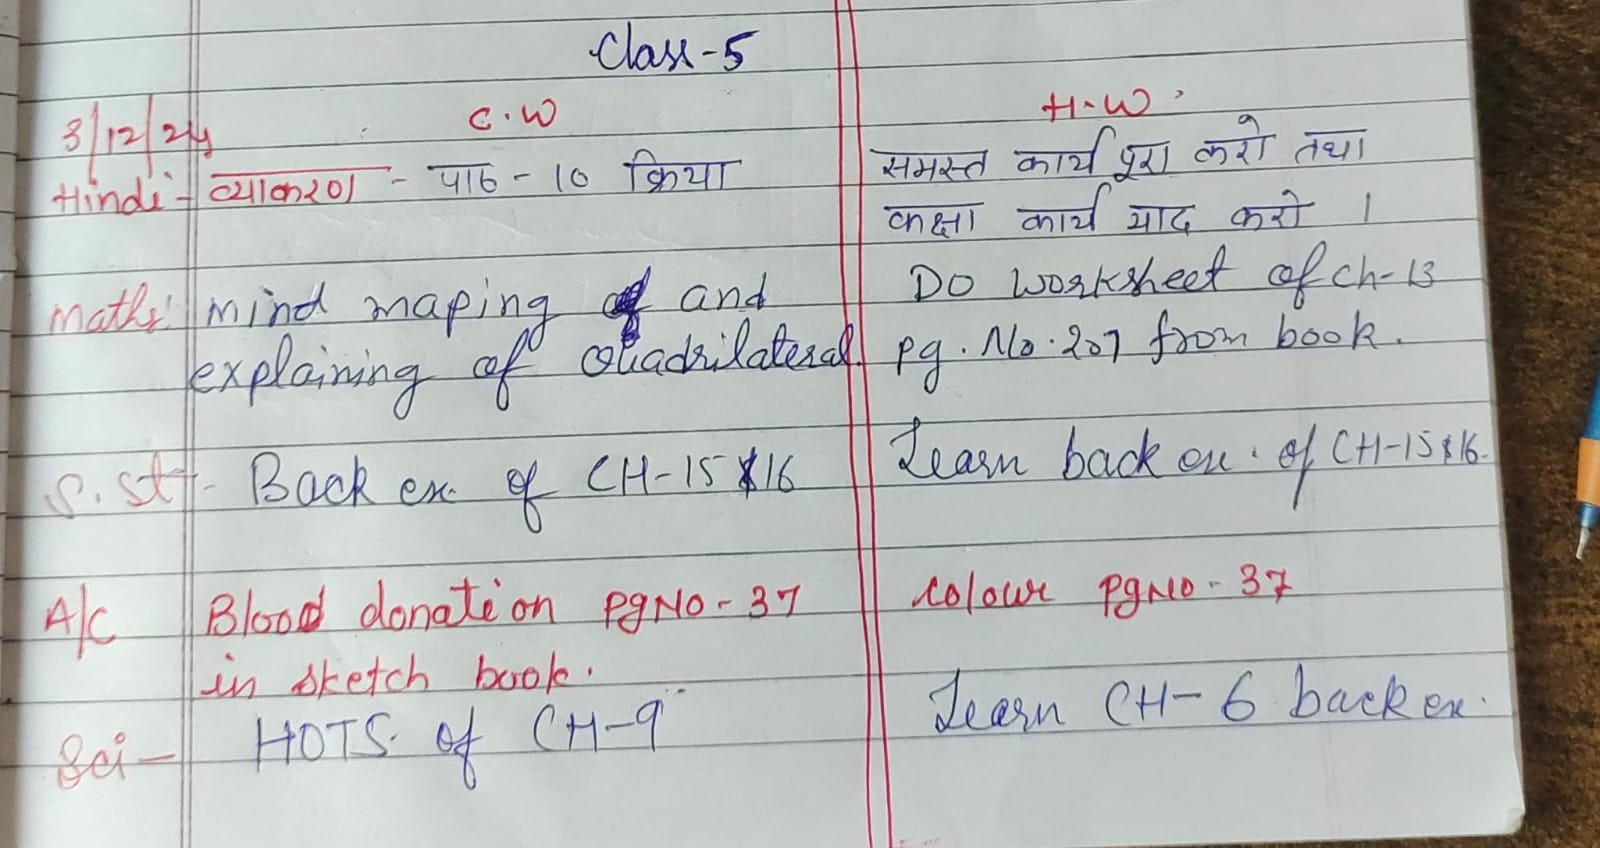 Class-5
3/12/24 C.W H.W.
Hindi - व्याकरण - पाठ - 10 क्रिया
समस्त कार्य पूरा करो तथा
कक्षा कार्य याद करो ।
Maths: Mind maping and
explaining of Quadrilateral.
Do worksheet of ch-13
pg. No. 207 from book.
S.St - Back ex. of CH-15 & 16
Learn back ex. of CH-15 & 16.
A/c Blood donation pg No - 37
in sketch book.
colour pg No - 37
Sci - HOTS. of CH-9
Learn CH-6 back ex.